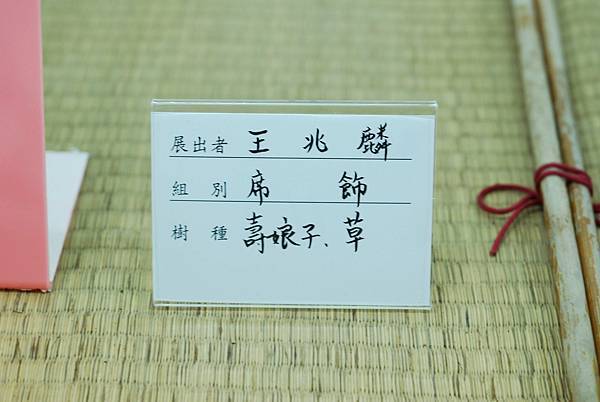 展出者 王兆麟
組別 席飾
樹種 壽娘子、草